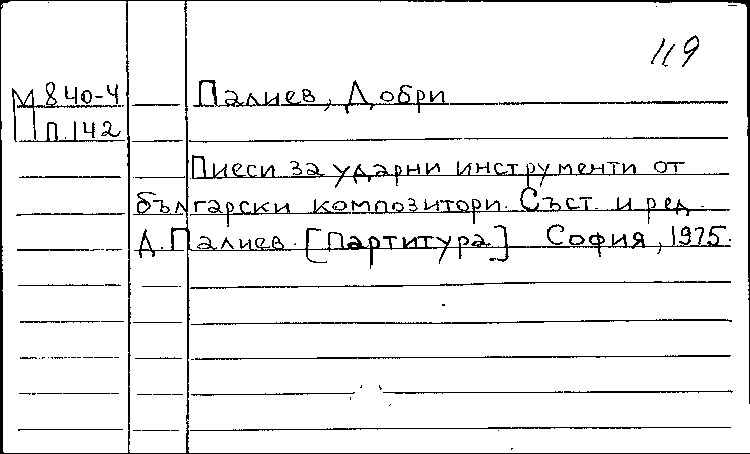 119
М 840-4 Палиев, Добри
П.142
Пиеси за ударни инструменти от
български композитори. Съст. и ред.
Д. Палиев. [Партитура] София, 1975.